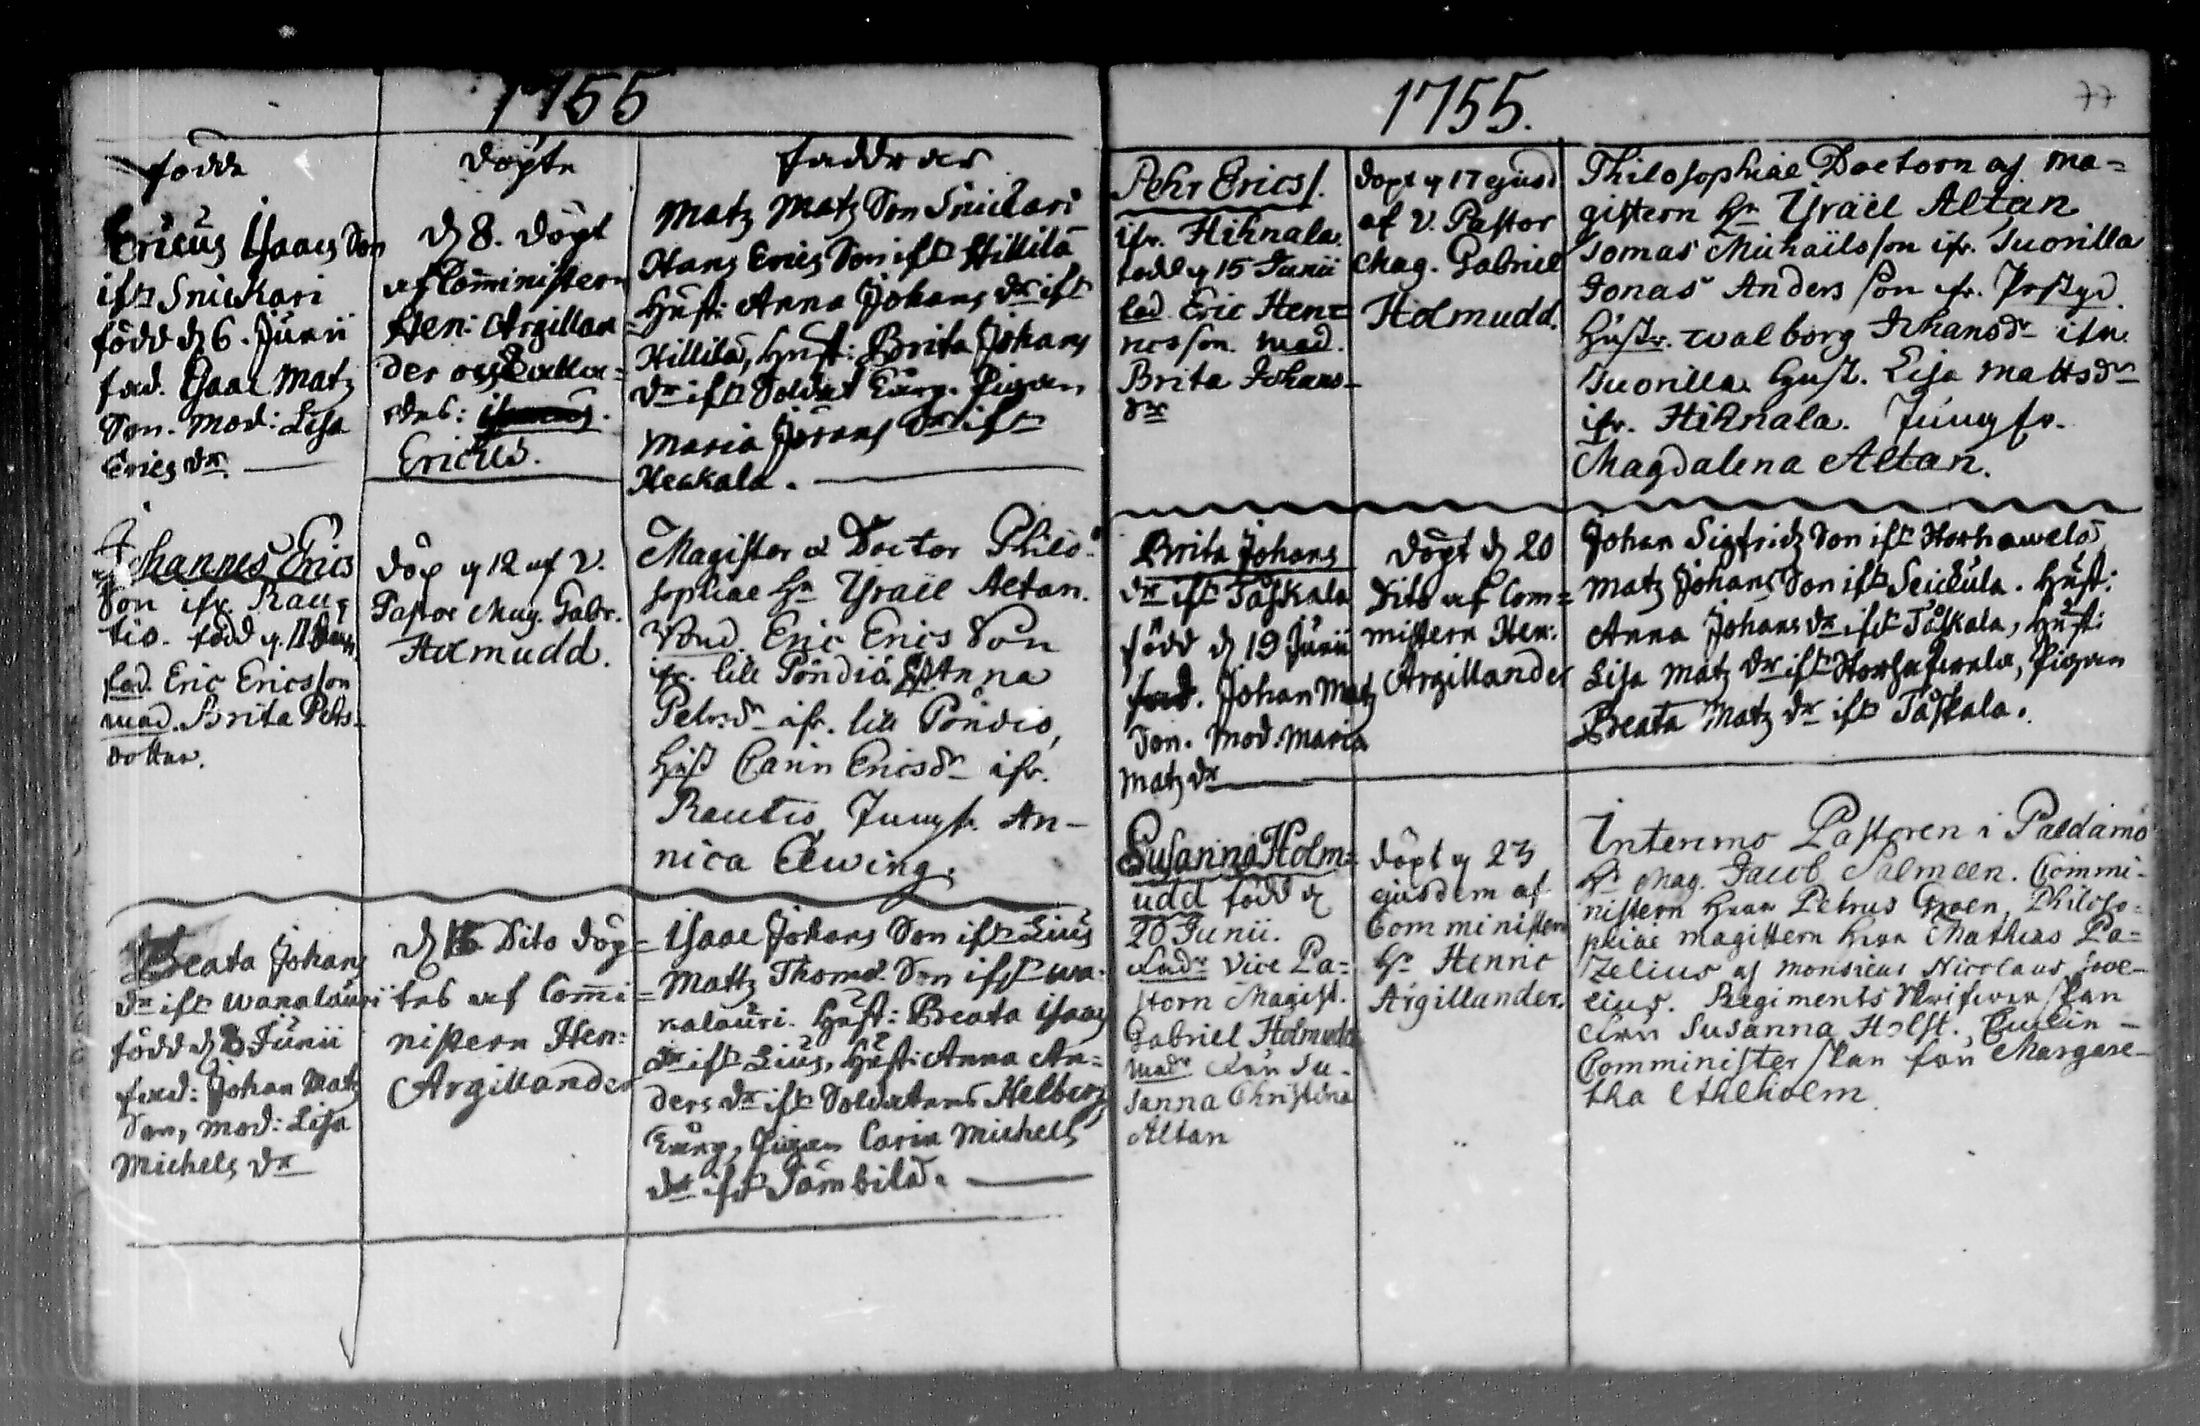 1755
födde
döpte
faddrar
Ericus Isaacs Son
ifr Snickari
född d 6. Junii
fad. Isaac Matz
Son. Mod: Lisa
Erics dr.
d 8. döpt
af Comministern
Hen: Argillan
der och kalla=
des:
Ericus.
Matz Matz Son Snickari
Hans Erics Son ifr Hillilä
Hust: Anna Johans dr ifr
Hillilä, Hust: Brita Johans
dr ifr Soldat Pigan
Maria Jörans dr ifr
Heskala.
Johannes Erics
Son ifr. Rau=
tio. född d. 11
fad. Eric Ericsson
mod. Brita Pehrs-
dotter.
döp d 12 af V.
Pastor Mag. Gabr.
Holmudd.
Magister a Doctor Philo-
sophiae Hr Israël Altan.
Eric Erics Son
ifr. lill Pöndiö Anna
Petersdr ifr. lill Pöndiö,
Hust Carin Ericsdr ifr.
Rautio Jungfr. An-
nica Elwing.
Beata Johans
dr ifr wanalauri
född d Junii
fad: Johan Matz
Son, mod: Lisa
Michels dr
d Dito döp=
tes af Comi=
nistern Hen:
Argillander
Isaac Johans Son ifr Lius
Mattz Thomæ Son ifr wa-
nalauri. Hust: Beata Isaacs
dr ifr Lius, Hust: Anna An=
ders dr ifr Soldatens Helbergs
Pigan Carin Michels
dr ifr Tömbilä.
1755.
77
Pehr Erics s.
ifr. Hihnala.
född d 15 Junii
fad. Eric Hen=
ricsson. mod.
Brita Johans-
dr
döpt d 17 ejusd
af V. Pastor
Mag. Gabriel
Holmudd.
Philosophiae Doctorn af ma=
gistern Hr Israël Altan
Tomas Michaïlsson ifr. Tuorilla
Jonas Andersson ifr.
Hustr. walborg Johansdr ifr.
Tuorilla. Hust. Lisa Mattsdr
ifr. Hihnala. Jungfr.
Magdalena Altan.
Brita Johans
dr ifr Påskala
född d 19 Junii
fad. Johan Matz
Son. Mod. Maria
Matz dr
döpt d 20
Dito af Com=
mistern Hen:
Argillander
Johan Sigfridz Son ifr
Matz Johans Son ifr Seickula. Hust:
Anna Johans dr ifr Påskala, Hust:
Lisa Matz dr ifr Pigan
Beata Matz dr ifr Påskala.
Susanna Holm=
udd född d
20 Junii.
Vice Pa=
storn Magist.
Gabriel Holmudd
mod Su-
sanna Christina
Altan
döpt d 23
ejusdem af
Comministern
Hr Henric
Argillander.
Interims Pastoren i Paldamo
Hr Mag. Jacob Salmeen. Commi-
nistern Herr Petrus Groen, Philoso=
phiae magistern Herr Mathias Pa=
zelius af Monsieur Nicolaus
lius. Regiments Skrifverskan
Susanna Holst.
Comministerskan fru Margare-
tha Ethholm